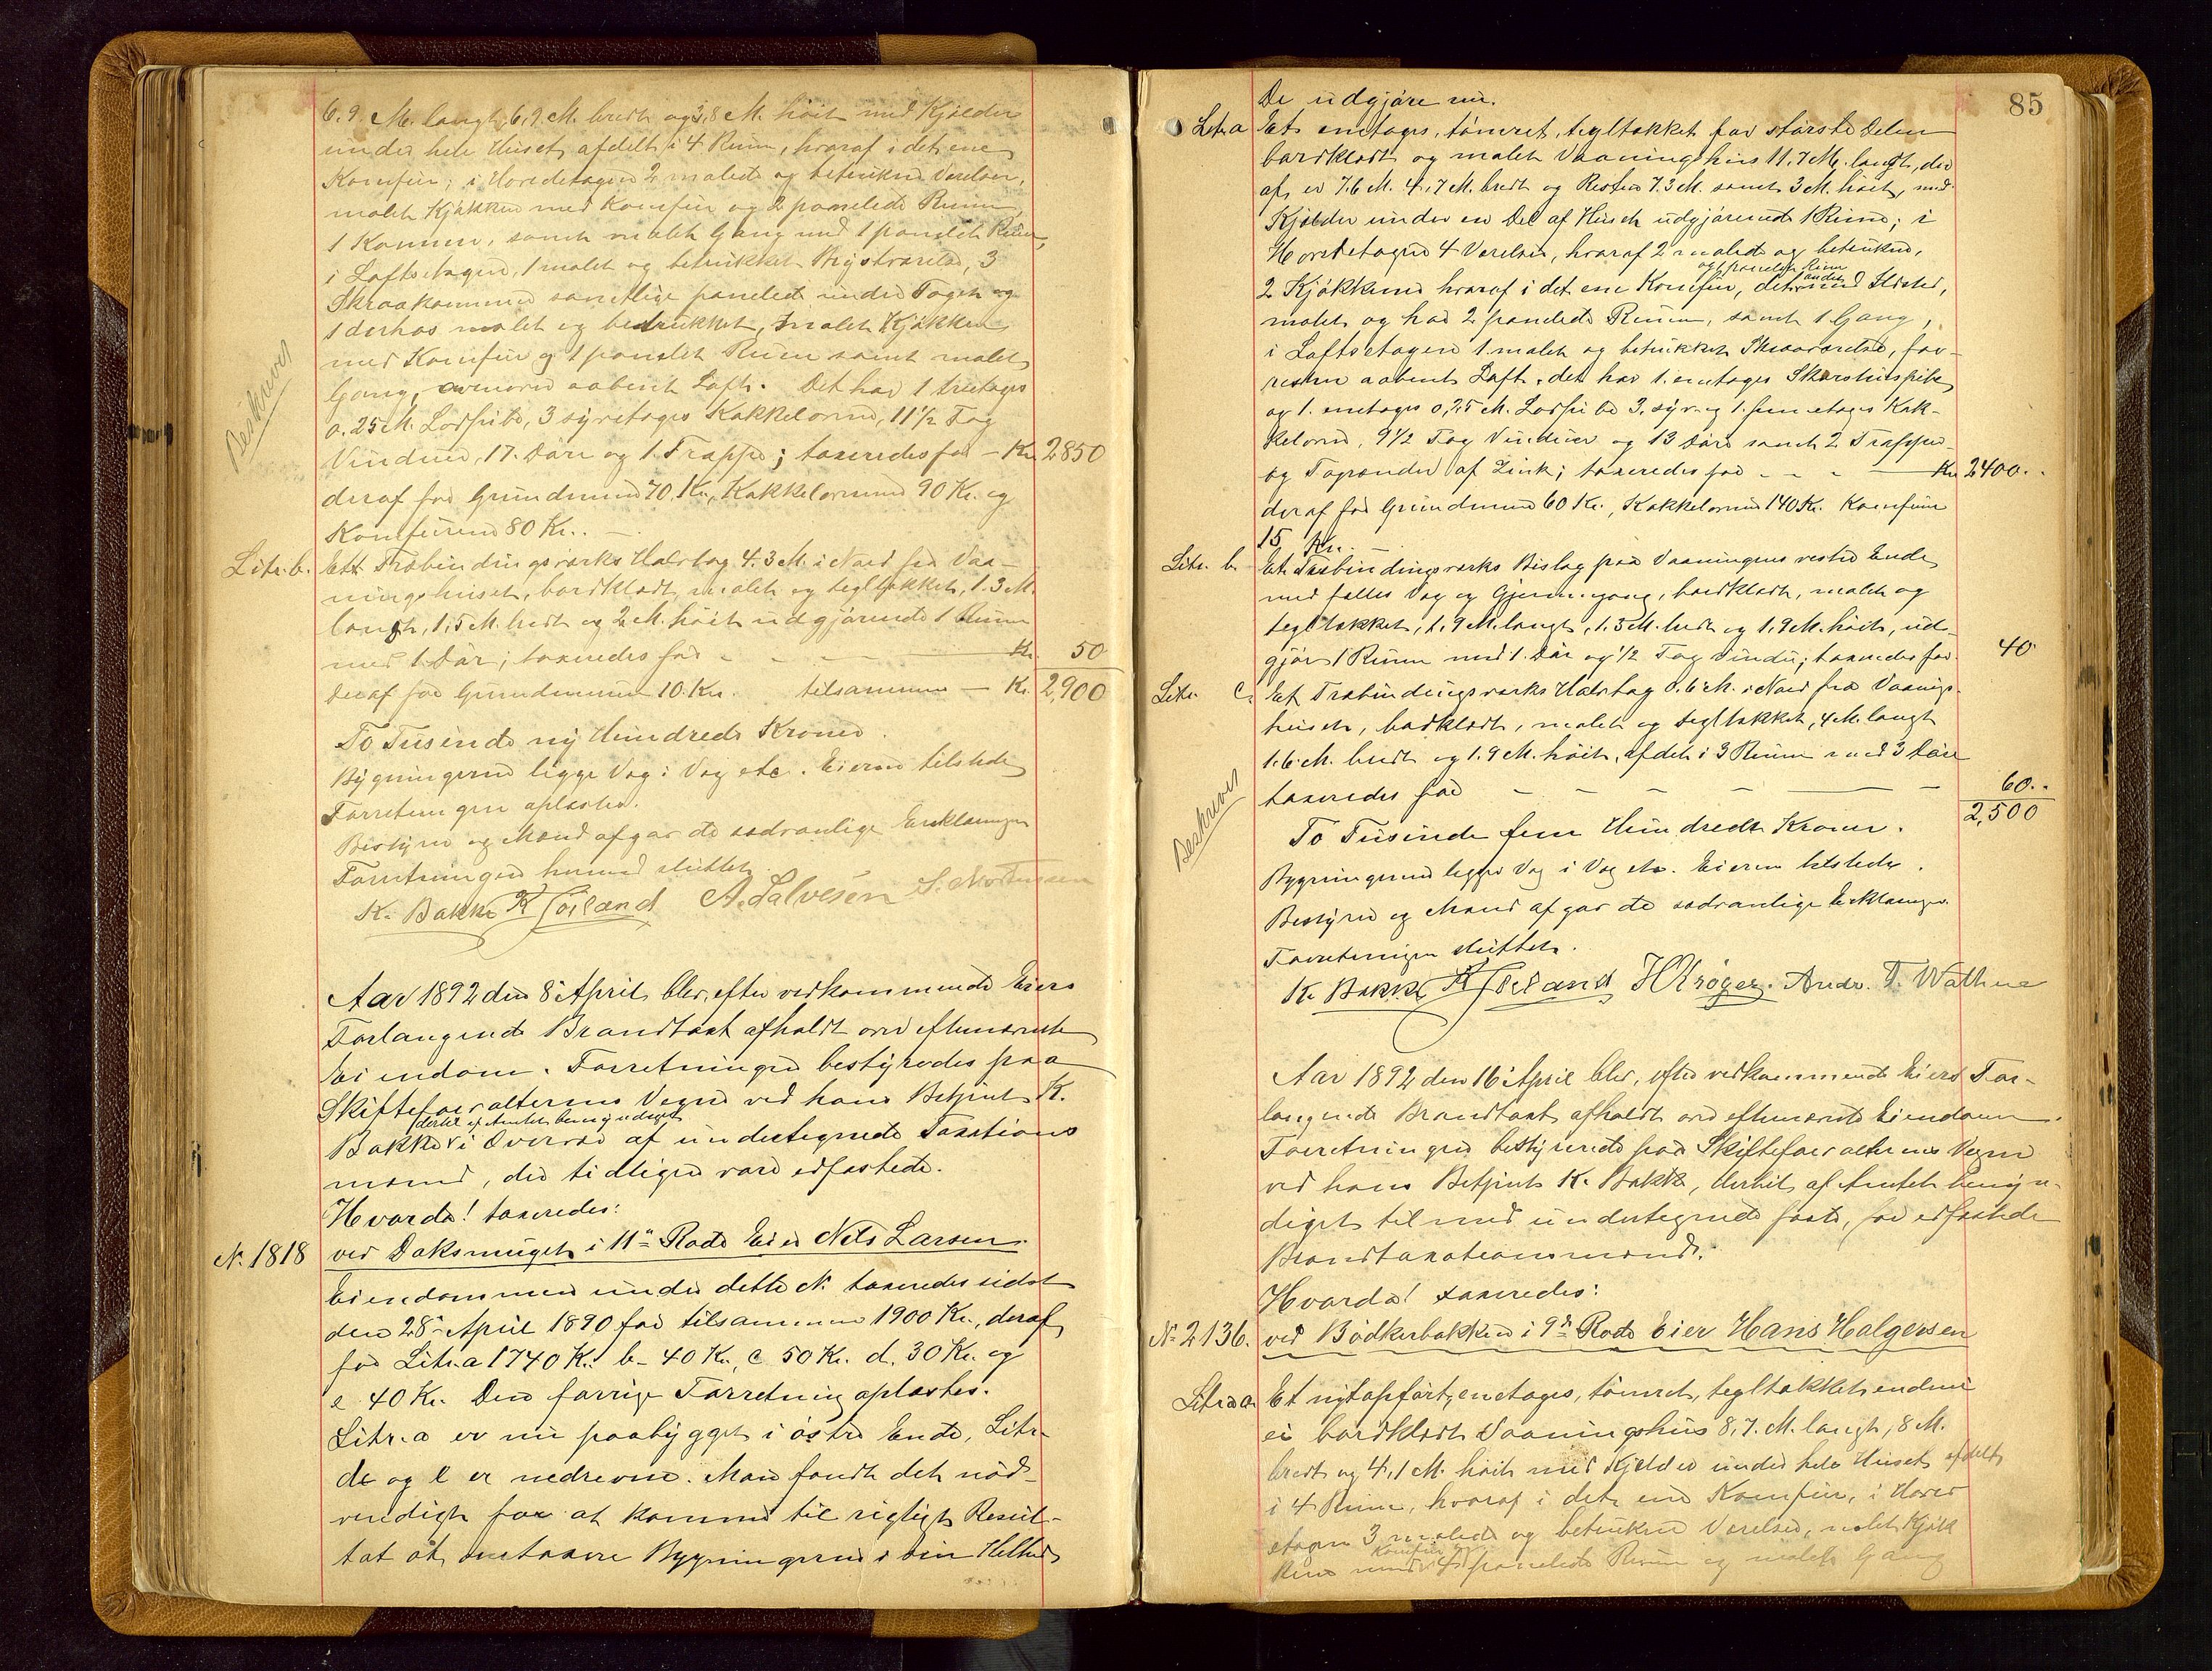 6.9 M. langt, 6,9 M. bredt og 3,8 M. höit med Kjelder
under hele Huset, afdelt i 4 Rum, hvoraf i det ene
Komfur; i Hovedetagen 2 malede og betrukne Værelser,
malet Kjökken med Komfur og 2 panelede Rum,
1 Kammer, samt malet Gang med 1 panelet Rum,
i Loftsetagen, 1 malet og betrukket Kvistværelse, 3
Skraakammere samtlige panelede under Taget og
1 derhos malet og betrukket, malet Kjökken
med Komfur og 1 panelet Rum samt malet
Gang, ovenover aabent Loft. Det har 1 treetages
0.25 M. Lodpibe, 3 syvetages Kakkelovne, 11½ Fag
Vinduer, 17 Döre og 1 Trappe; taxeredes for – Kr. 2850
deraf for Grundmuren 70 Kr., Kakkelovnene 90 Kr. og
Komfurene 80 Kr. –
Beskreves
Litr. b. Et Træbindingsværks Halvtag 4.3 M. i Nord fra Vaa-
ningshuset, bordklædt, malet og tegltækket, 1.3 M.
langt, 1,5 M. bredt og 2 M. höit udgjörende 1 Rum
med 1 Dör; taxeredes for – – – Kr. 50
deraf for Grundmuren 10 Kr. tilsammen – Kr. 2,900
To Tusinde ny Hundrede Kroner.
Bygningerne ligge Væg i Væg etc. Eieren tilstede
Forretningen oplæstes.
Bestyrer og Mænd afgav de sædvanlige Erklæringer
Forretningen hermed sluttet.
K. Bakke K Höiland A. Salvesen S. Mortensen
Aar 1892 den 8 April blev, efter vedkommende Eiers
Forlangende Brandtaxt afholdt over eftennævnte
Eiendom. Forretningen bestyredes paa
Skifteforvalterens Vegne ved hans Betjent K.
dertil af Amtet bemyndiget
Bakke i Overvær af undertegnede Taxations
mænd, der tidligere vare edfæstede.
Hvorda! taxeredes:
N. 1818 ved Daksmuget i 11te Rode Eier Nels Larsen.
Eiendommen under dette No taxeredes sidst
den 28 April 1890 for tilsammen 1900 Kr., deraf
for Litr. a 1740 Kr. b – 40 Kr., c 50 Kr. d. 30 Kr. og
e 40 Kr. Den forrige Forretning oplæstes.
Litr. a er nu paabygget i östre Ende, Litr.
d og e er nedrevne. Man fandt det nöd-
vendigt for at komme til rigtigt Resul-
tat at omtaxere Bygningerne i sin Helhed
85
De udgjöre nu.
Litr. a Et enetages, tömret, tegltækket for störste Delen
bordklædt og malet Vaaningshus 11,7 M. langt, der
af er 7.6 M. 4,7 M. bredt og Resten 7.3 M. samt 3 M. höit, med
Kjelder under en Del af Huset udgjörende 1 Rum; i
Hovedetagen 4 Værelser, hvoraf 2 malede og betrukne,
og panelet Rum
2 Kjökkener hvoraf i det ene Komfur, det andet med Ildsted,
malet og har 2 panelede Rum, samt 1 Gang,
i Loftsetagen 1 malet og betrukket Skraaværelse, for-
resten aabent Loft. det har 1 enetages Skorstenspibe
og 1 enetages 0,25 M. Lodpibe 3 syv- og 1 fem etages Kak-
kelovne, 9½ Fag Vinduer og 13 Döre samt 2 Trapper
og Tagrender af Zink; taxeredes for – – – Kr. 2400.
deraf for Grundmuren 60 Kr., Kakkelovnene 140 Kr. Komfuren
15 Kr. –
Litr. b. Et Træbindingsværks Bislag paa Vaaningens vestre Ende
med fælles Væg og Gjennemgang, bordklædt, malet og
tegltækket, 1,9 M. langt, 1.3 M. bredt og 1,9 M. höit, ud-
gjör 1 Rum med 1 Dör og ½ Fag Vindu; taxeredes for 40
Litr. c. Et Træbindingsværks Halvtag 0.6 M. i Nord fra Vaanings-
huset, bordklædt, malet og tegltækket, 4 M. langt
1.6 M. bredt og 1.9 M. höit, afdelt i 3 Rum med 3 Döre
taxeredes for – – – – 60.
2,500
Beskreves
To Tusinde fem Hundrede Kroner.
Bygningerne ligger Væg i Væg etc. Eieren tilstede.
Bestyrer og Mænd afgav de sædvanlige Erklæringer.
Forretningen sluttet.
K. Bakke K Höiland H Kröger. Andr. T. Wathne
Aar 1892 den 16 April blev, efter vedkommende Eiers For-
langende Brandtaxt afholdt over eftennævnte Eiendom.
Forretningen bestyrede paa Skifteforvalterens Vegne
ved hans Betjent K. Bakke, dertil af Amtet bemyn-
diget til med undertegnede faste, for edfæstede
Brandtaxationsmænd.
Hvorda! taxeredes:
No 2136. ved Bödkerbakken i 9de Rode Eier Hans Halgersen
Litr. a Et nyt opfört, enetages, tömret, tegltækket, endnu
ei bordklædt Vaaningshus 8,7 M. langt, 8 M.
bredt og 4,1 M. höit med Kjelder under hele Huset afdelt
i 4 Rum, hvoraf i det ene Komfur, i Hoved
etagen 3 malede og betrukne Værelser, malet Kjök
Komfur og
ken med 4 panelede Rum og malet Gang